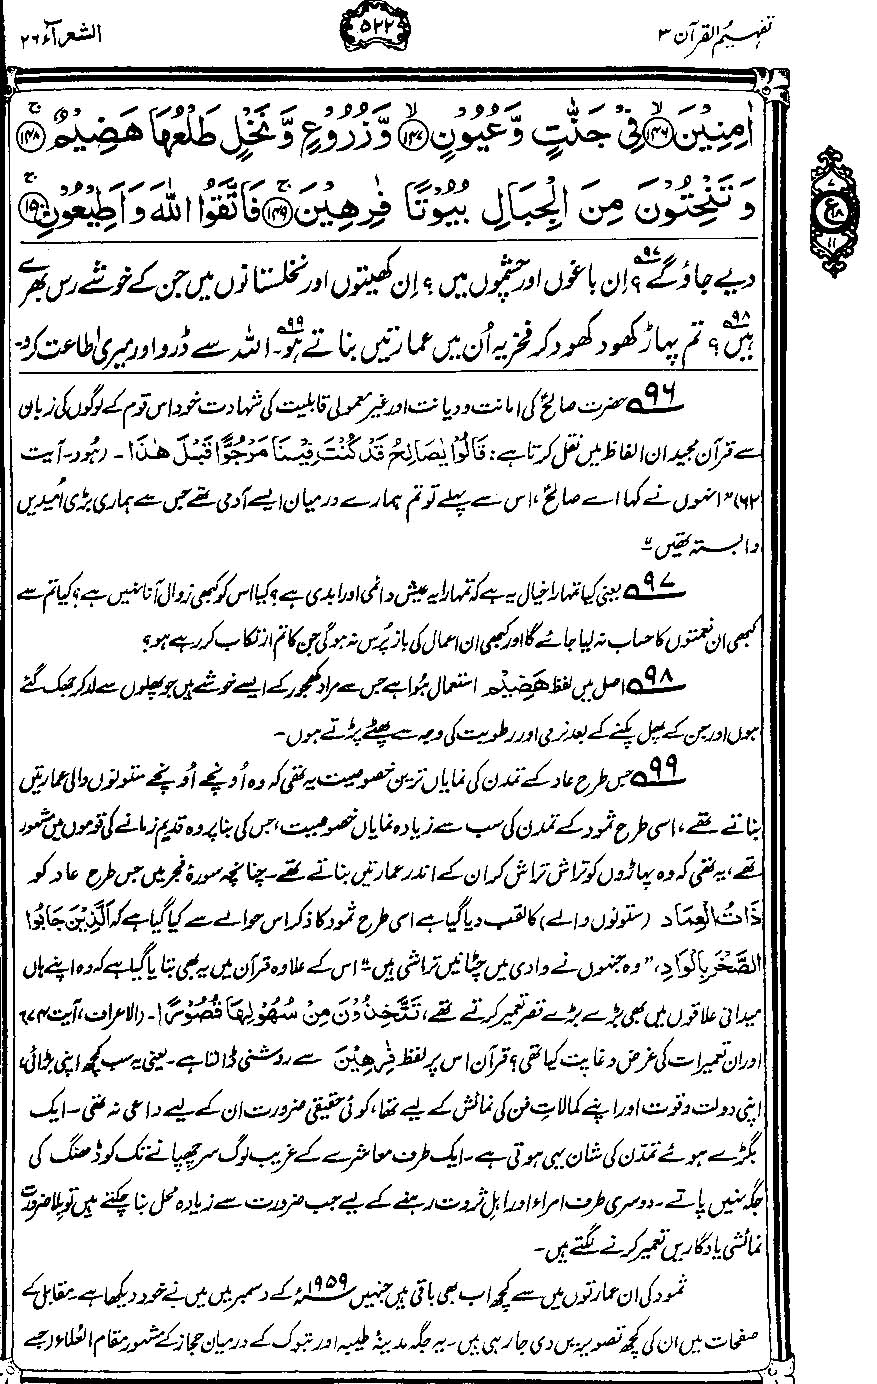 تفہیم القرآن ۳
۵۲۲
الشعرآء ۲۶
اٰمِنِيْنَ ﴿۱۴۶﴾ فِيْ جَنّٰتٍ وَّعُيُوْنٍ ﴿۱۴۷﴾ وَّزُرُوْعٍ وَّنَخْلٍ طَلْعُهَا هَضِيْمٌ ﴿۱۴۸﴾
وَتَنْحِتُوْنَ مِنَ الْجِبَالِ بُيُوْتًا فٰرِهِيْنَ ﴿۱۴۹﴾ فَاتَّقُوا اللّٰهَ وَاَطِيْعُوْنِ ﴿۱۵۰﴾
دیے جاؤ گے؟ اِن باغوں اور چشموں میں؟ اِن کھیتوں اور نخلستانوں میں جن کے خوشے رس بھرے
ہیں؟ تم پہاڑ کھود کھود کر فخریہ اُن میں عمارتیں بناتے ہو۔ اللہ سے ڈرو اور میری اطاعت کرو۔
۹۶ حضرت صالحؑ کی امانت و دیانت اور غیر معمولی قابلیت کی شہادت خود اس قوم کے لوگوں کی زبان
سے قرآن مجید ان الفاظ میں نقل کرتا ہے: قَالُوْا يٰصَالِحُ قَدْ كُنْتَ فِيْنَا مَرْجُوًّا قَبْلَ هٰذَا۔ (ہود۔ آیت
۶۲) "انہوں نے کہا اے صالحؑ، اس سے پہلے تو تم ہمارے درمیان ایسے آدمی تھے جس سے ہماری بڑی اُمیدیں
وابستہ تھیں"۔
۹۷ یعنی کیا تمہارا خیال یہ ہے کہ تمہارا یہ عیش دائمی اور ابدی ہے؟ کیا اس کو کبھی زوال آنا نہیں ہے؟ کیا تم سے
کبھی ان نعمتوں کا حساب نہ لیا جائے گا اور کبھی ان اعمال کی باز پُرس نہ ہوگی جن کا تم ارتکاب کر رہے ہو؟
۹۸ اصل میں لفظ هَضِيْم استعمال ہوا ہے جس سے مراد کھجور کے ایسے خوشے ہیں جو پھلوں سے لد کر جھک گئے
ہوں اور جن کے پھل پکنے کے بعد نرمی اور رطوبت کی وجہ سے پھٹے پڑتے ہوں۔
۹۹ جس طرح عاد کے تمدن کی نمایاں ترین خصوصیت یہ تھی کہ وہ اُونچے اُونچے ستونوں والی عمارتیں
بناتے تھے، اسی طرح ثمود کے تمدن کی سب سے زیادہ نمایاں خصوصیت، جس کی بنا پر وہ قدیم زمانے کی قوموں میں مشہور
تھے، یہ تھی کہ وہ پہاڑوں کو تراش تراش کر ان کے اندر عمارتیں بناتے تھے۔ چنانچہ سورۂ فجر میں جس طرح عاد کو
ذَاتُ الْعِمَاد (ستونوں والے) کا لقب دیا گیا ہے اسی طرح ثمود کا ذکر اس حوالے سے کیا گیا ہے کہ اَلَّذِيْنَ جَابُوا
الصَّخْرَ بِالْوَادِ، "وہ جنہوں نے وادی میں چٹانیں تراشی ہیں"۔ اس کے علاوہ قرآن میں یہ بھی بتایا گیا ہے کہ وہ اپنے ہاں
میدانی علاقوں میں بھی بڑے بڑے قصر تعمیر کرتے تھے، تَتَّخِذُوْنَ مِنْ سُهُوْلِهَا قُصُوْرًا۔ (الاعراف، آیت ۷۴)۔
اور ان تعمیرات کی غرض و غایت کیا تھی؟ قرآن اس پر لفظ فٰرِهِيْنَ سے روشنی ڈالتا ہے۔ یعنی یہ سب کچھ اپنی بڑائی،
اپنی دولت و قوت اور اپنے کمالاتِ فن کی نمائش کے لیے تھا، کوئی حقیقی ضرورت ان کے لیے داعی نہ تھی۔ ایک
بگڑے ہوئے تمدن کی شان یہی ہوتی ہے۔ ایک طرف معاشرے کے غریب لوگ سر چھپانے تک کو ڈھنگ کی
جگہ نہیں پاتے۔ دوسری طرف امراء اور اہلِ ثروت رہنے کے لیے جب ضرورت سے زیادہ محل بنا چکتے ہیں تو بلا ضرورت
نمائشی یادگاریں تعمیر کرنے لگتے ہیں۔
ثمود کی ان عمارتوں میں سے کچھ اب بھی باقی ہیں جنہیں ۱۹۵۹ء کے دسمبر میں میں نے خود دیکھا ہے۔ مقابل کے
صفحات میں ان کی کچھ تصویریں دی جا رہی ہیں۔ یہ جگہ مدینۂ طیبہ اور تبوک کے درمیان حجاز کے مشہور مقام العُلاء (جسے